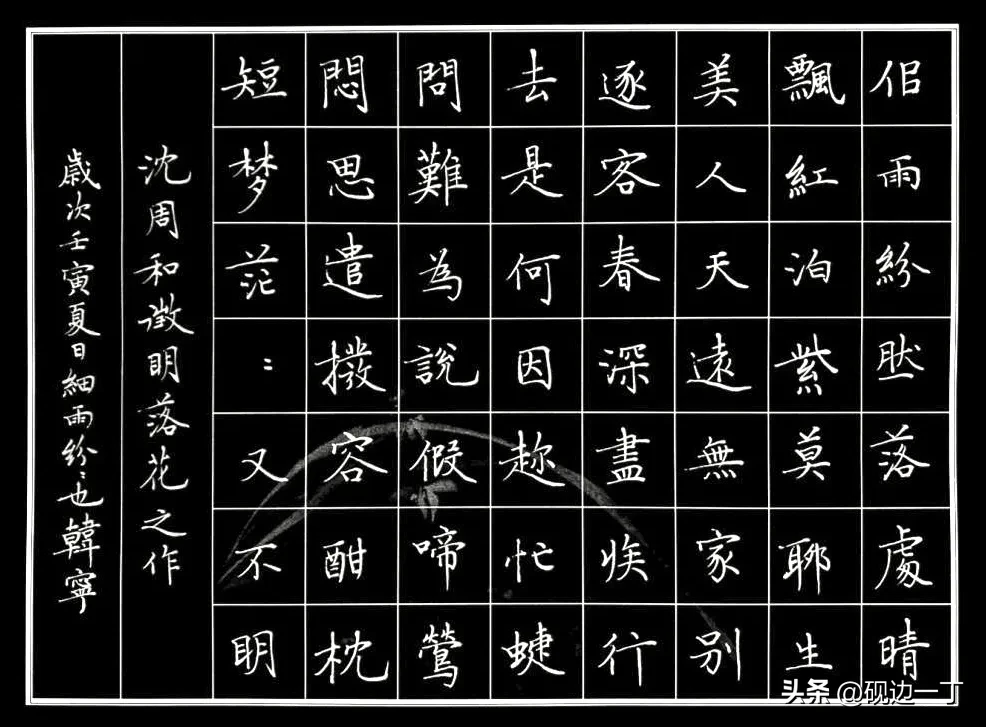 佀雨紛然落處晴
飄紅泊紫莫聊生
美人天遠無家別
逐客春深盡族行
去是何因趂忙蜨
問難為說假啼鶯
悶思遣撥容酣枕
短梦茫〻又不明
沈周和徵明落花之作
歲次壬寅夏日細雨紛〻也韓寧
头条 @砚边一丁